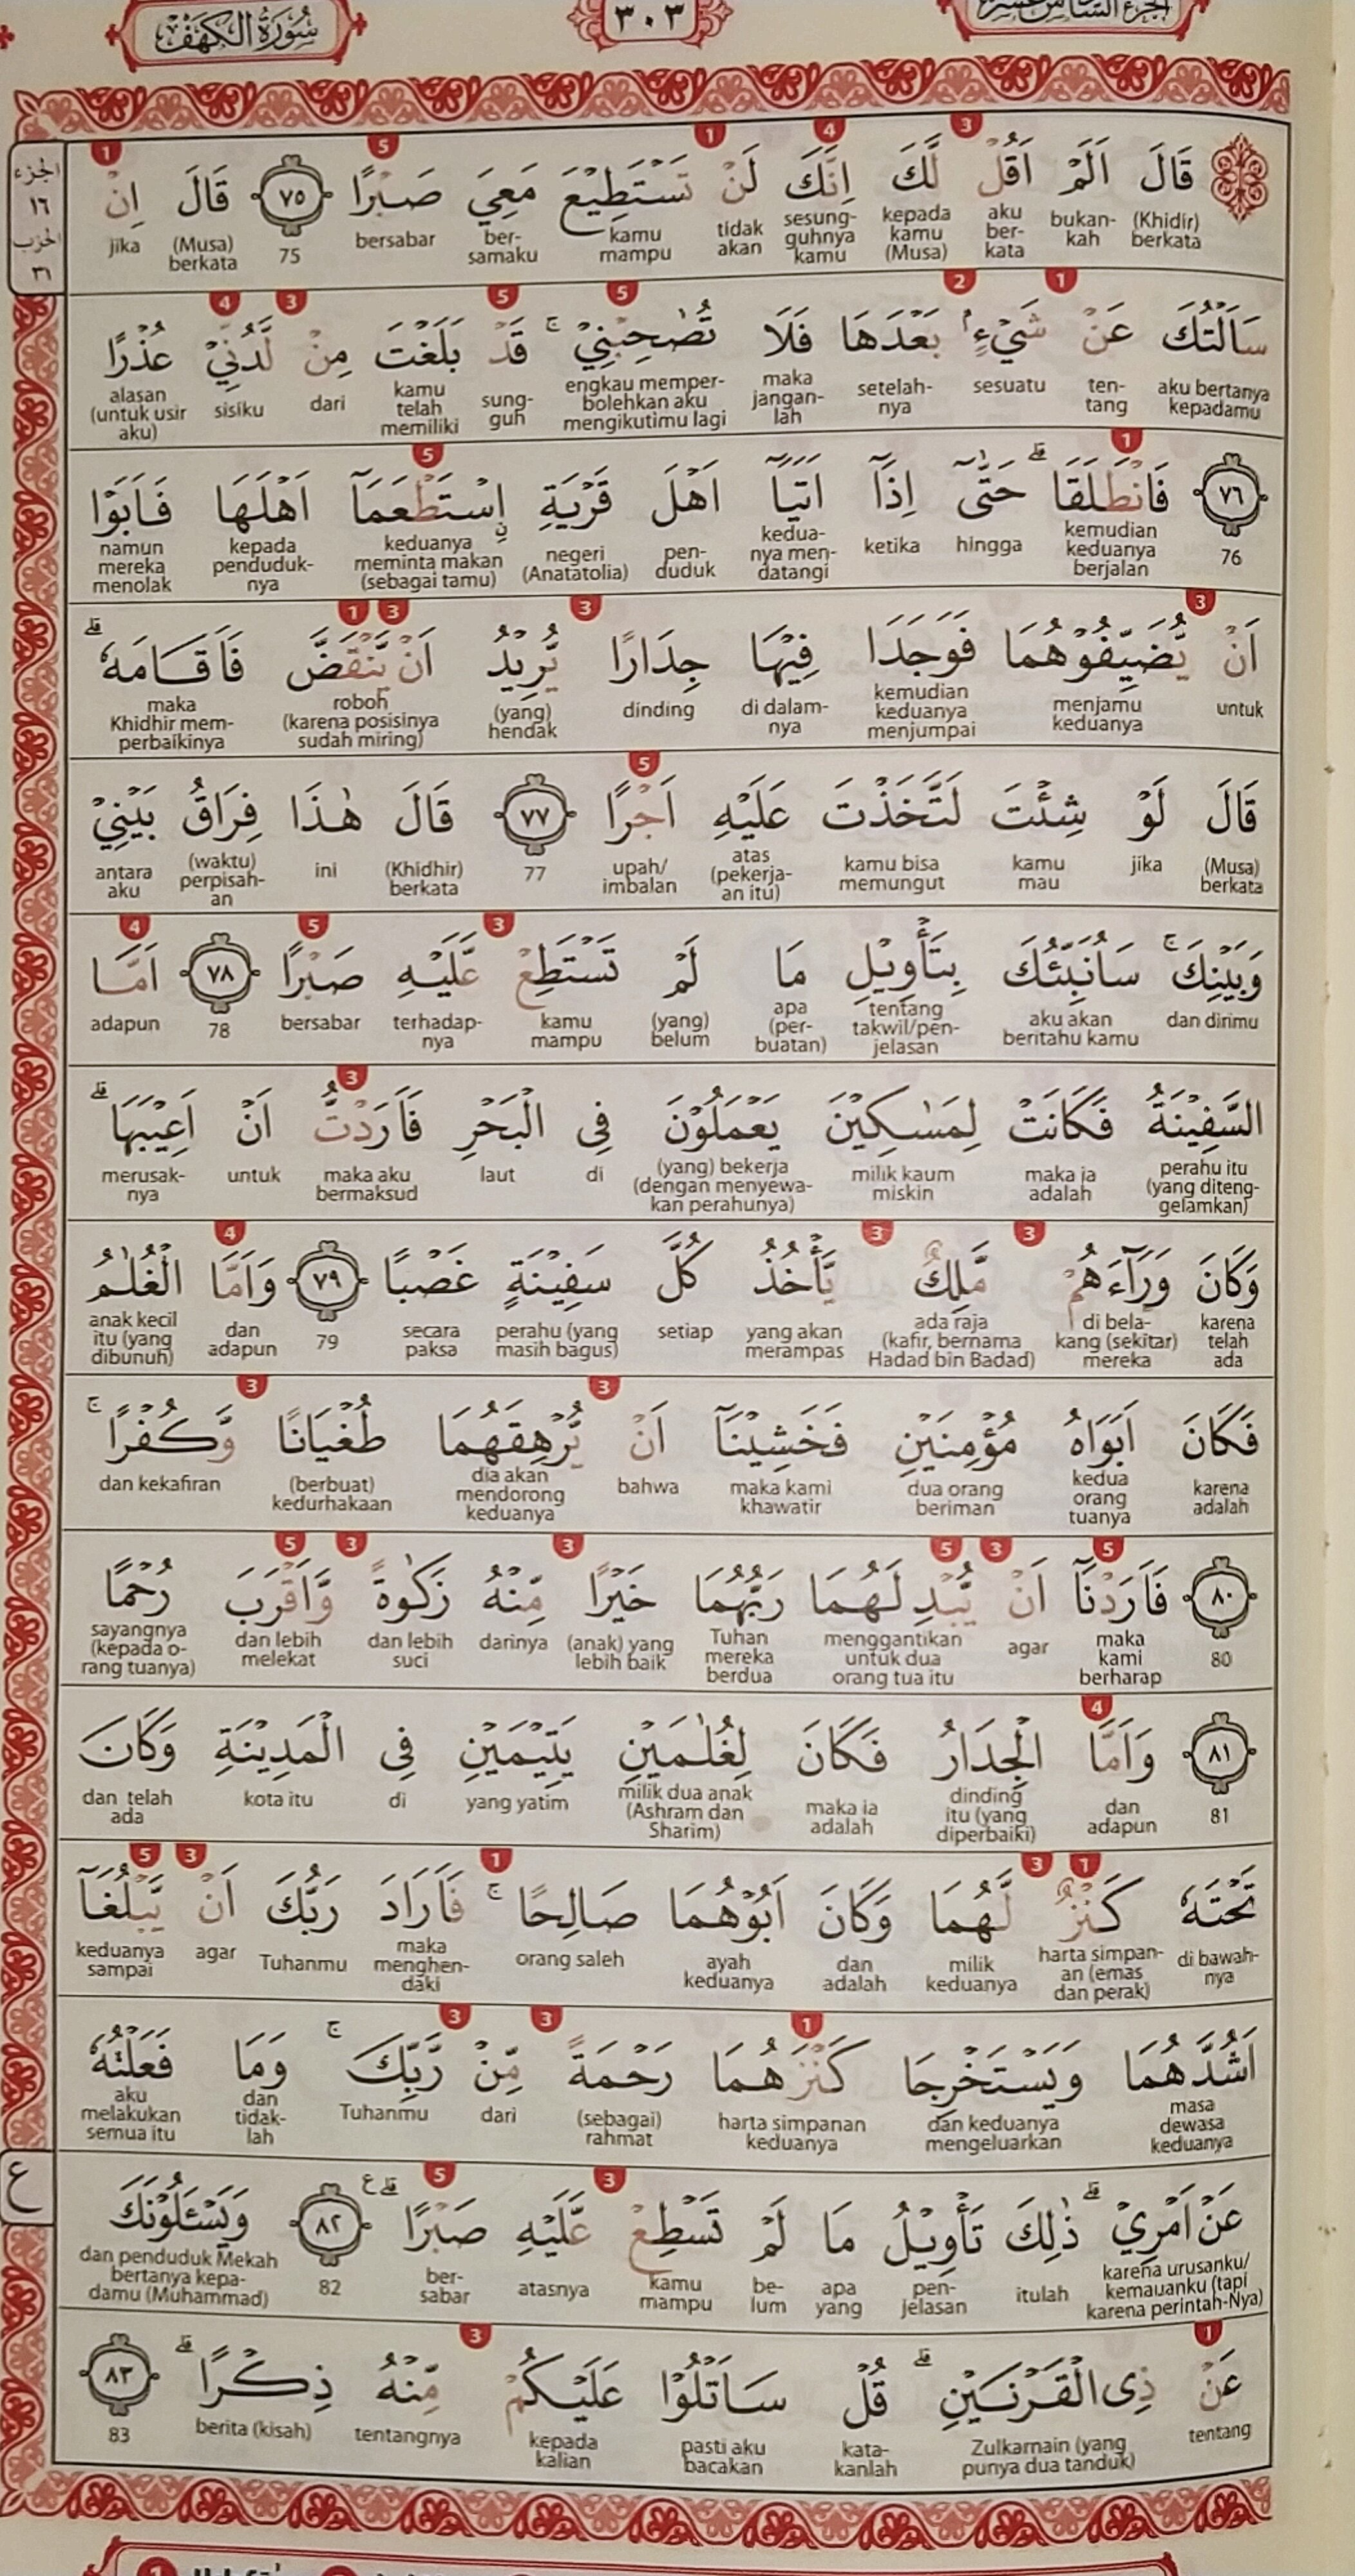 سُورَةُ الْكَهْفِ ٣٠٣ الجزء السادس عشر
الجزء ١٦ الحزب ٣١
قَالَ اَلَمْ اَقُلْ لَّكَ اِنَّكَ لَنْ تَسْتَطِيْعَ مَعِيَ صَبْرًا ٧٥ قَالَ اِنْ
(Khidir) berkata bukan-kah aku ber-kata kepada kamu (Musa) sesung-guhnya kamu tidak akan kamu mampu ber-samaku bersabar 75 (Musa) berkata jika
سَاَلْتُكَ عَنْ شَيْءٍۢ بَعْدَهَا فَلَا تُصٰحِبْنِيْ ۚ قَدْ بَلَغْتَ مِنْ لَّدُنِّيْ عُذْرًا
aku bertanya kepadamu ten-tang sesuatu setelah-nya maka jangan-lah engkau memper-bolehkan aku mengikutimu lagi sung-guh kamu telah memiliki dari sisiku alasan (untuk usir aku)
٧٦ فَانْطَلَقَا ۗ حَتّٰىٓ اِذَآ اَتَيَآ اَهْلَ قَرْيَةِ ِۨاسْتَطْعَمَآ اَهْلَهَا فَاَبَوْا
76 kemudian keduanya berjalan hingga ketika kedua-nya men-datangi pen-duduk negeri (Anatatolia) keduanya meminta makan (sebagai tamu) kepada penduduk-nya namun mereka menolak
اَنْ يُّضَيِّفُوْهُمَا فَوَجَدَا فِيْهَا جِدَارًا يُّرِيْدُ اَنْ يَّنْقَضَّ فَاَقَامَهٗ ۗ
untuk menjamu keduanya kemudian keduanya menjumpai di dalam-nya dinding (yang) hendak roboh (karena posisinya sudah miring) maka Khidhir mem-perbaikinya
قَالَ لَوْ شِئْتَ لَتَّخَذْتَ عَلَيْهِ اَجْرًا ٧٧ قَالَ هٰذَا فِرَاقُ بَيْنِيْ
(Musa) berkata jika kamu mau kamu bisa memungut atas (pekerja-an itu) upah/imbalan 77 (Khidhir) berkata ini (waktu) perpisah-an antara aku
وَبَيْنِكَ ۚ سَاُنَبِّئُكَ بِتَأْوِيْلِ مَا لَمْ تَسْتَطِعْ عَّلَيْهِ صَبْرًا ٧٨ اَمَّا
dan dirimu aku akan beritahu kamu tentang takwil/pen-jelasan apa (per-buatan) (yang) belum kamu mampu terhadap-nya bersabar 78 adapun
السَّفِيْنَةُ فَكَانَتْ لِمَسٰكِيْنَ يَعْمَلُوْنَ فِى الْبَحْرِ فَاَرَدْتُّ اَنْ اَعِيْبَهَا ۗ
perahu itu (yang diteng-gelamkan) maka ia adalah milik kaum miskin (yang) bekerja (dengan menyewa-kan perahunya) di laut maka aku bermaksud untuk merusak-nya
وَكَانَ وَرَاۤءَهُمْ مَّلِكٌ يَّأْخُذُ كُلَّ سَفِيْنَةٍ غَصْبًا ٧٩ وَاَمَّا الْغُلٰمُ
karena telah ada di bela-kang (sekitar) mereka ada raja (kafir, bernama Hadad bin Badad) yang akan merampas setiap perahu (yang masih bagus) secara paksa 79 dan adapun anak kecil itu (yang dibunuh)
فَكَانَ اَبَوَاهُ مُؤْمِنَيْنِ فَخَشِيْنَآ اَنْ يُّرْهِقَهُمَا طُغْيَانًا وَّكُفْرًا ۚ
karena adalah kedua orang tuanya dua orang beriman maka kami khawatir bahwa dia akan mendorong keduanya (berbuat) kedurhakaan dan kekafiran
٨٠ فَاَرَدْنَآ اَنْ يُّبْدِلَهُمَا رَبُّهُمَا خَيْرًا مِّنْهُ زَكٰوةً وَّاَقْرَبَ رُحْمًا
80 maka kami berharap agar menggantikan untuk dua orang tua itu Tuhan mereka berdua (anak) yang lebih baik darinya dan lebih suci dan lebih melekat sayangnya (kepada o-rang tuanya)
٨١ وَاَمَّا الْجِدَارُ فَكَانَ لِغُلٰمَيْنِ يَتِيْمَيْنِ فِى الْمَدِيْنَةِ وَكَانَ
81 dan adapun dinding itu (yang diperbaiki) maka ia adalah milik dua anak (Ashram dan Sharim) yang yatim di kota itu dan telah ada
تَحْتَهٗ كَنْزٌ لَّهُمَا وَكَانَ اَبُوْهُمَا صَالِحًا ۚ فَاَرَادَ رَبُّكَ اَنْ يَّبْلُغَآ
di bawah-nya harta simpan-an (emas dan perak) milik keduanya dan adalah ayah keduanya orang saleh maka menghen-daki Tuhanmu agar keduanya sampai
اَشُدَّهُمَا وَيَسْتَخْرِجَا كَنْزَهُمَا رَحْمَةً مِّنْ رَّبِّكَ ۚ وَمَا فَعَلْتُهٗ
masa dewasa keduanya dan keduanya mengeluarkan harta simpanan keduanya (sebagai) rahmat dari Tuhanmu dan tidak-lah aku melakukan semua itu
عَنْ اَمْرِيْ ۗ ذٰلِكَ تَأْوِيْلُ مَا لَمْ تَسْطِعْ عَّلَيْهِ صَبْرًا ۗ ࣖ ٨٢ وَيَسْـَٔلُوْنَكَ ع
karena urusanku/kemauanku (tapi karena perintah-Nya) itulah pen-jelasan apa yang be-lum kamu mampu atasnya ber-sabar 82 dan penduduk Mekah bertanya kepa-damu (Muhammad)
عَنْ ذِى الْقَرْنَيْنِ ۗ قُلْ سَاَتْلُوْا عَلَيْكُمْ مِّنْهُ ذِكْرًا ۗ ٨٣
tentang Zulkarnain (yang punya dua tanduk) kata-kanlah pasti aku bacakan kepada kalian tentangnya berita (kisah) 83